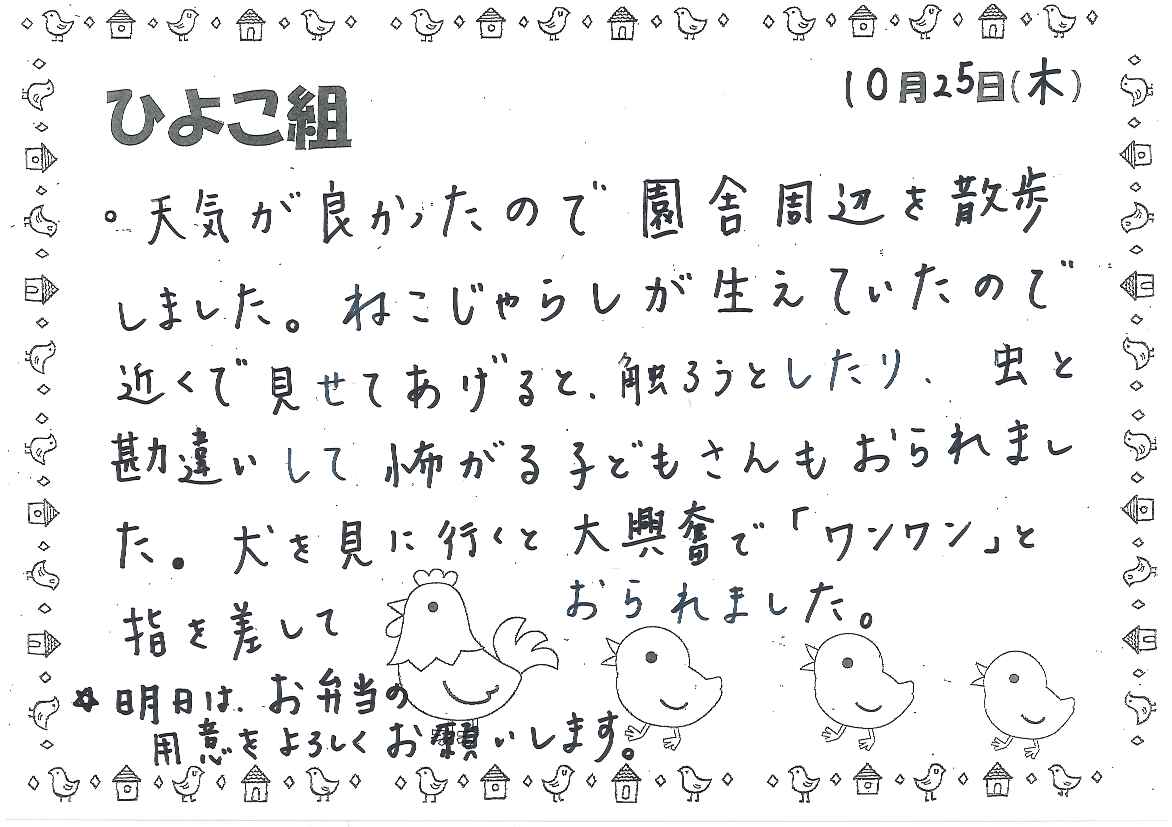 10月25日(木)
ひよこ組
。天気が良かったので園舎周辺を散歩
しました。ねこじゃらしが生えていたので
近くで見せてあげると、触ろうとしたり、虫と
勘違いして怖がる子どもさんもおられまし
た。犬を見に行くと大興奮で「ワンワン」と
指を差して おられました。
☆明日は、お弁当の
用意をよろしくお願いします。